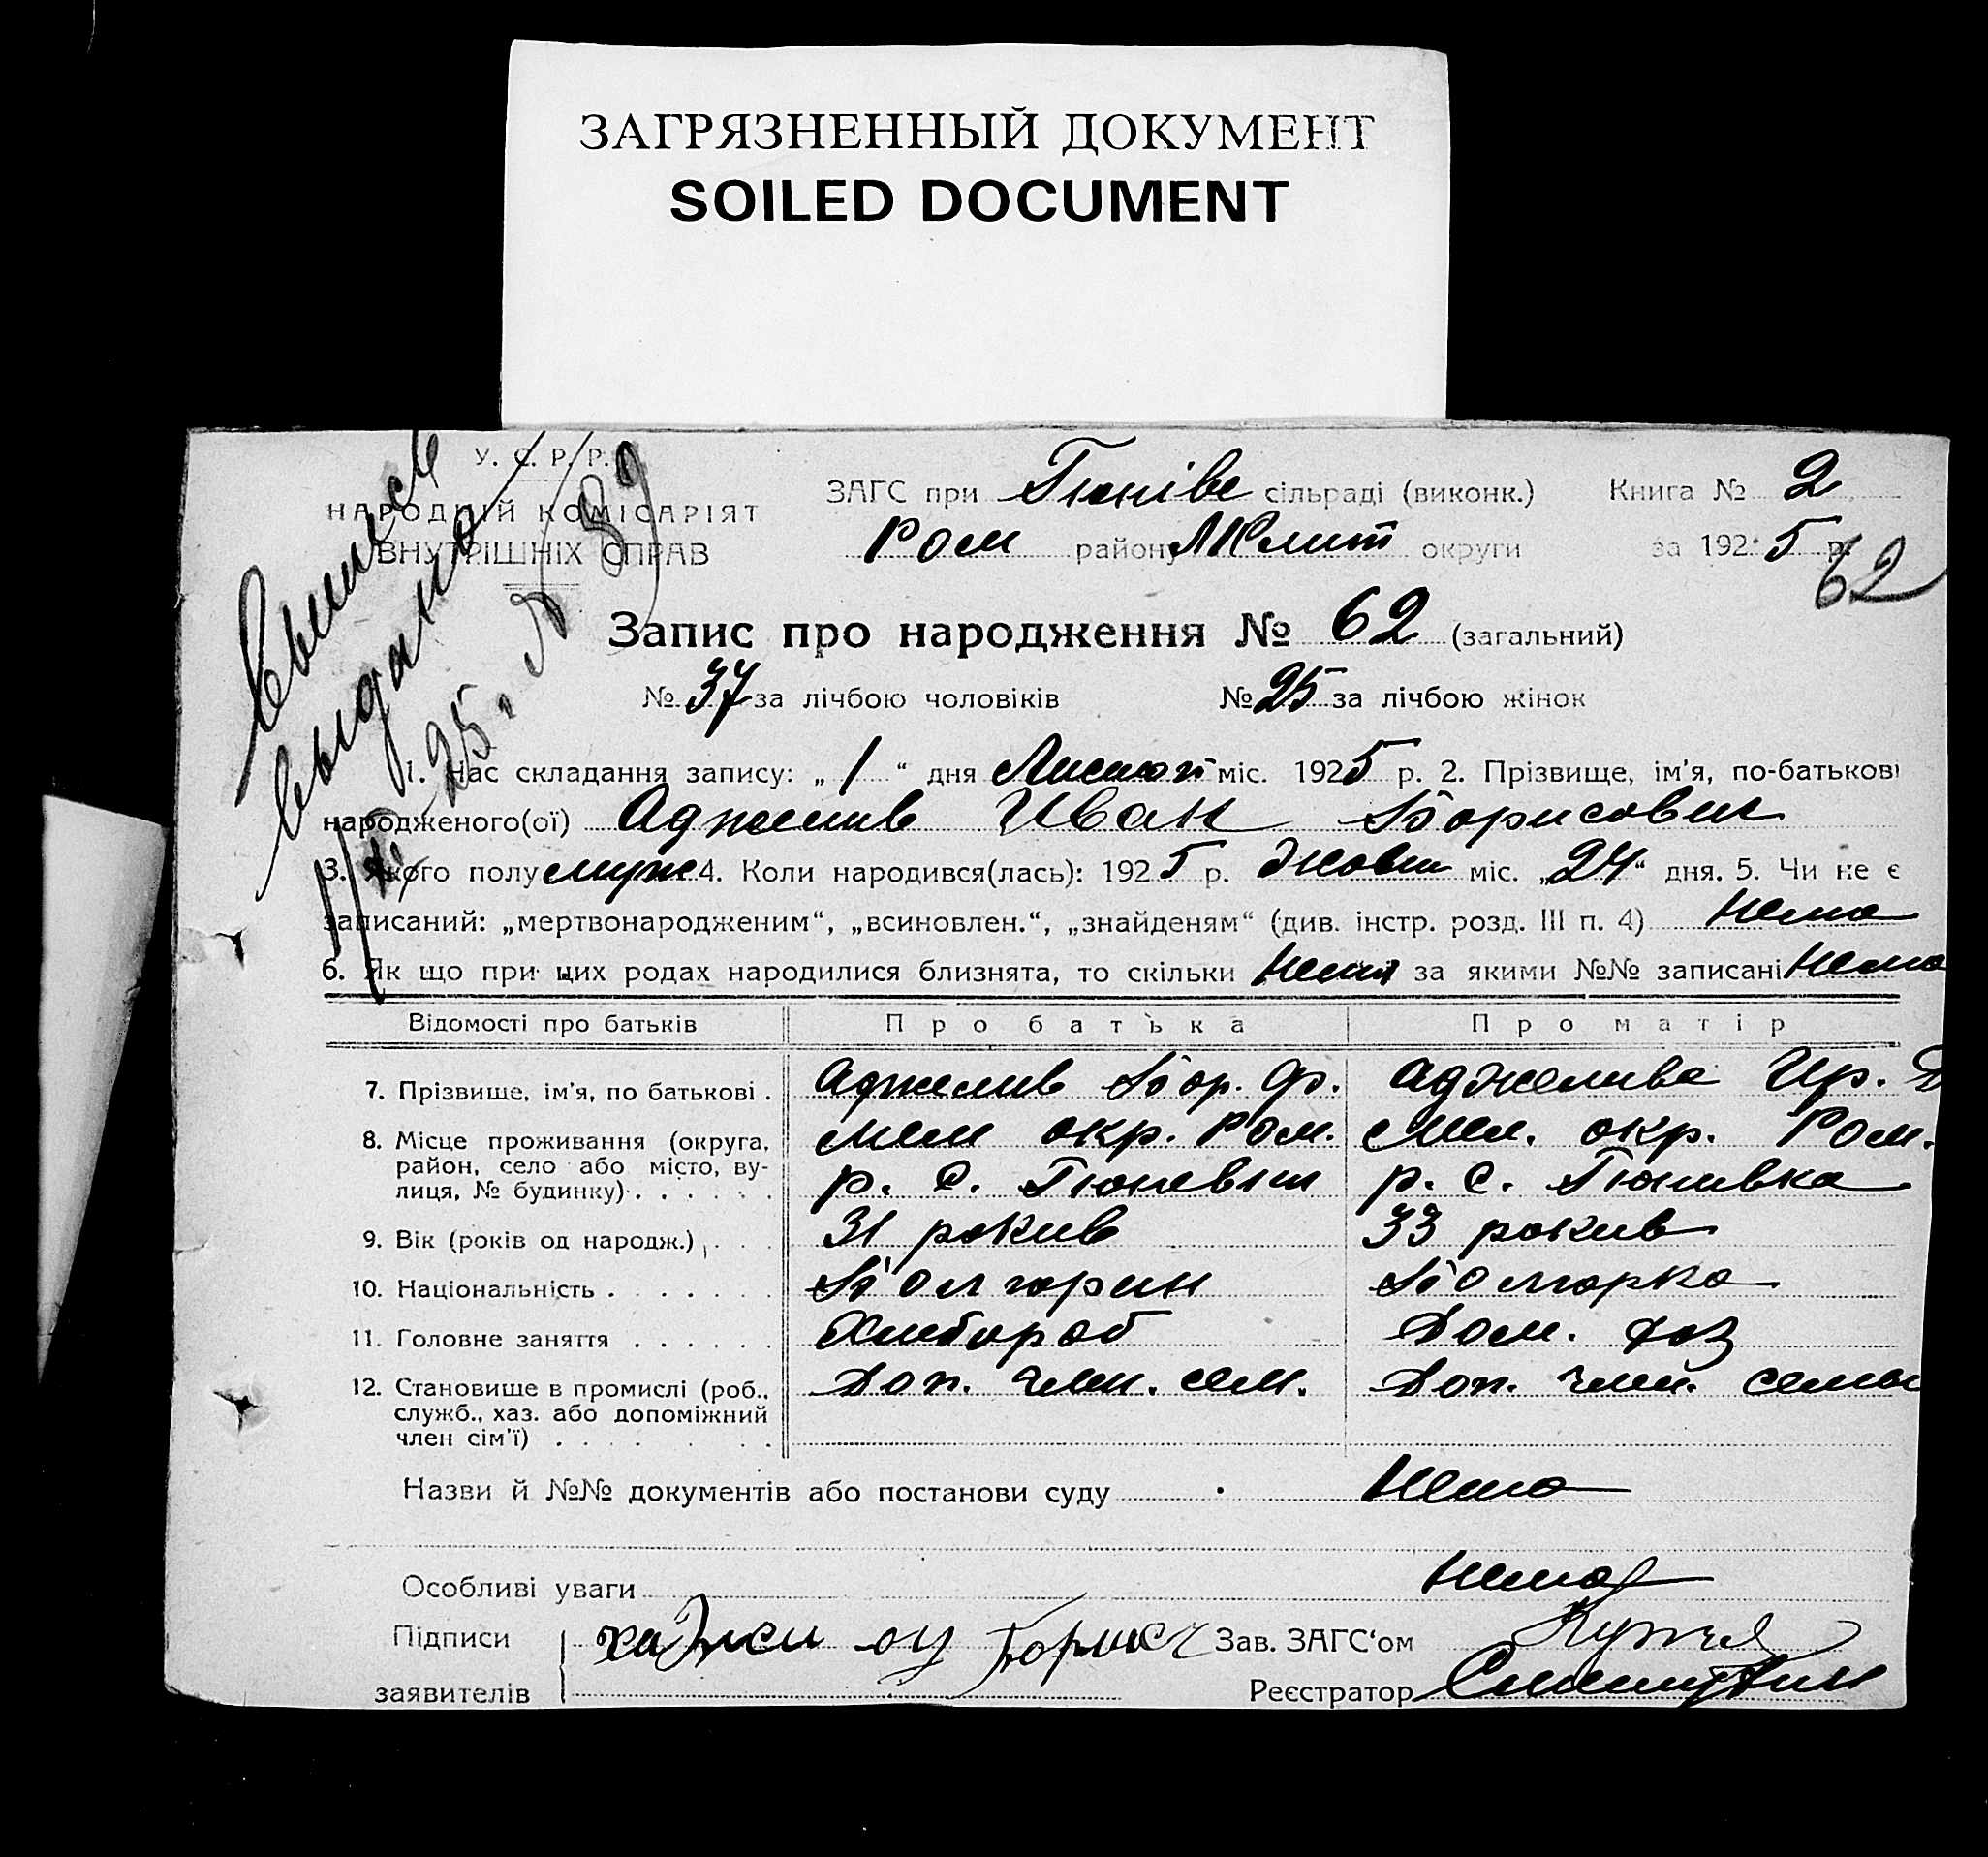 ЗАГРЯЗНЕННЫЙ ДОКУМЕНТ
SOILED DOCUMENT
У. С. Р. Р.
НАРОДНІЙ КОМІСАРІЯТ
ВНУТРІШНІХ СПРАВ
Выпись
выдано
25. № 89
ЗАГС при Гюнівс сільраді (виконк.) Книга № 2
Ром району Мелит округи за 1925 р.
62
Запис про народження № 62 (загальний)
№ 37 за лічбою чоловіків № 25 за лічбою жінок
1. Час складання запису: „ 1 “ дня Листоп міс. 1925 р. 2. Прізвище, ім'я, по-батькові
народженого(ої) Аджелив Иван Борисович
3. Якого полу муж 4. Коли народився(лась): 1925 р. Жовт міс. „24“ дня. 5. Чи не є
записаний: „мертвонародженим“, „всиновлен.“, „знайденям“ (див. інстр. розд. III п. 4) Нема
6. Як що при цих родах народилися близнята, то скільки Нема за якими №№ записані Нема
Відомості про батьків Про батька Про матір
7. Прізвище, ім'я, по батькові . Аджелив Бор. Ф. Аджелива Ир.
8. Місце проживання (округа, Мел окр. Ром. Мел. окр. Ром.
район, село або місто, ву- р. С. Гюневки р. С. Гюнивка
лиця, № будинку) . . . . . .
9. Вік (років од народж.) . . . 31 рокив 33 рокив
10. Національність . . . . . . . Болгарин Болгарка
11. Головне заняття . . . . . . Хлибороб Дом. хоз
12. Становище в промислі (роб., Доп. член. сем. Доп. член. семьи
служб., хаз. або допоміжний
член сім'ї) . . . . . . .
Назви й №№ документів або постанови суду Нема
Особливі уваги Нема
Підписи Зав. ЗАГС'ом
заявителів Реєстратор